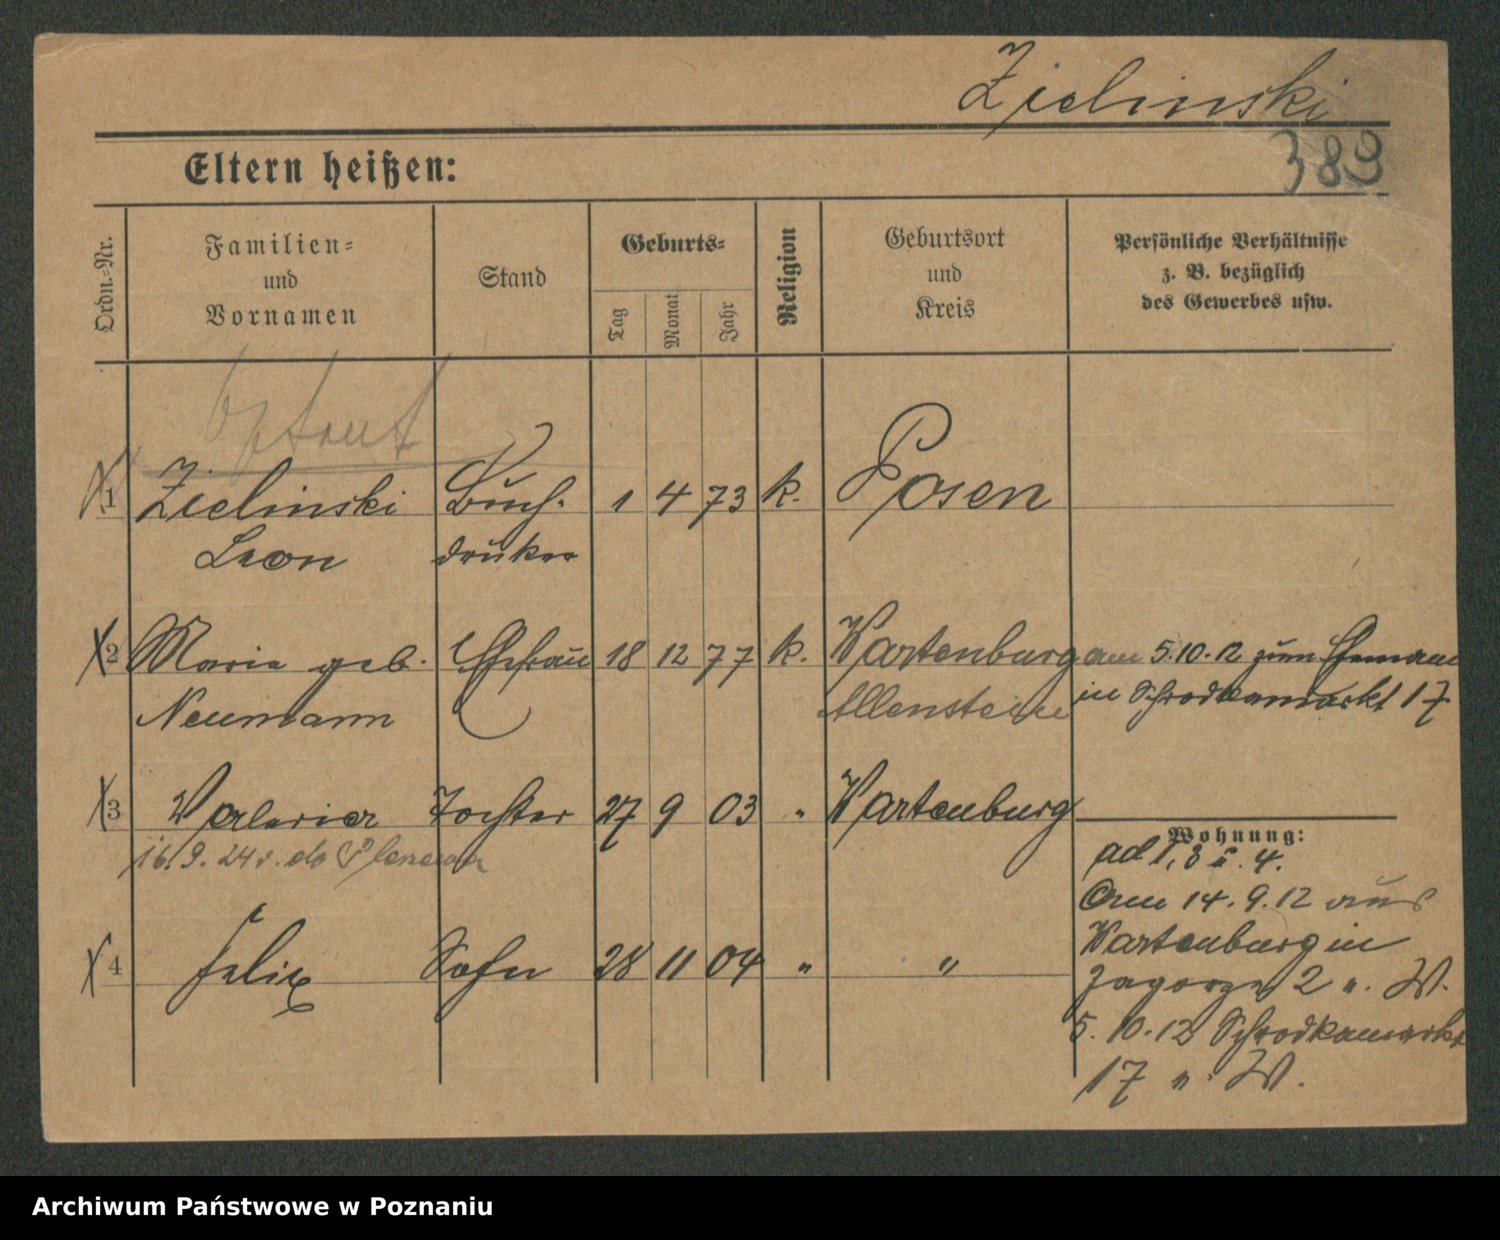 Zielinski
389
Eltern heißen:
Ordn.-Nr.
Familien-
und
Vornamen
Stand
Geburts-
Tag
Monat
Jahr
Religion
Geburtsort
und
Kreis
Persönliche Verhältnisse
z. B. bezüglich
des Gewerbes usw.
Optant
1 Zielinski Buch- 1 4 73 k. Posen
Leon drucker
2 Marie geb. Ehefrau 18 12 77 k. Wartenburg am 5.10.12 zum Ehemann
Neumann Allenstein in Schrodkamarkt 17
3 Valeria Tochter 27 9 03 " Wartenburg
16.9.24 v. do
Wohnung:
ad 1, 3 u. 4.
Am 14.9.12 aus
4 Felix Sohn 28 11 04 " "
Wartenburg in
Zagorze 2 b. W.
5.10.12 Schrodkamarkt
17 b. W.
Archiwum Państwowe w Poznaniu